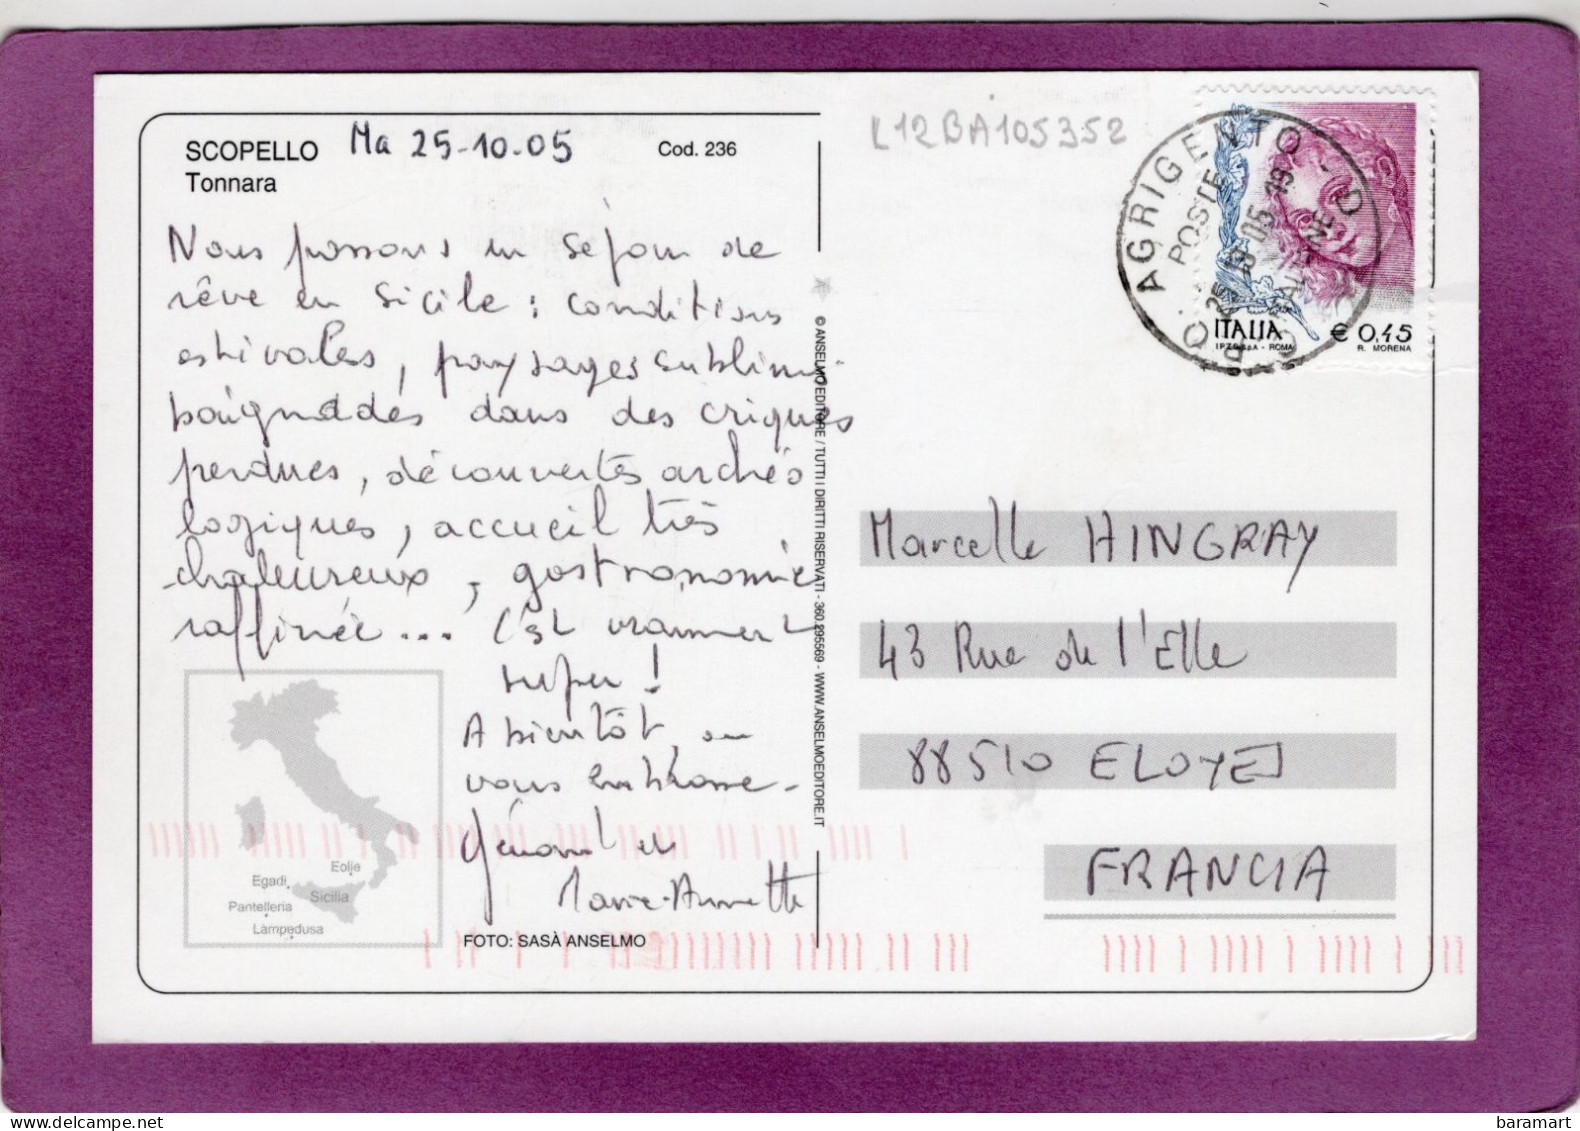 SCOPELLO Ma 25-10-05 Cod. 236
Tonnara
Nous passons un séjour de
rêve en Sicile : conditions
estivales, paysages sublimes
baignades dans des criques
perdues, découvertes archéo
logiques, accueil très
chaleureux, gastronomie
raffinée... C'est vraiment
super !
A bientôt, on
vous embrasse -
Gérard et
Marie-Annette
Eolie
Egadi
Sicilia
Pantelleria
Lampedusa
FOTO: SASÀ ANSELMO
© ANSELMO EDITORE / TUTTI I DIRITTI RISERVATI - 360.295569 - WWW.ANSELMOEDITORE.IT
L12BA105352
AGRIGENTO
POSTE
ITALIA
€ 0,45
I.P.Z.S. S.p.A. - ROMA
R. MORENA
Marcelle HINGRAY
43 Rue de l'Elle
88510 ELOYES
FRANCIA
baramart